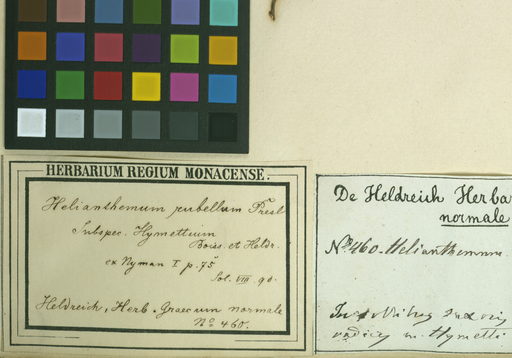 HERBARIUM REGIUM MONACENSE.
Helianthemum rubellum Presl
Subspec. Hymettium
Boiss. et Heldr.
ex Nyman I p. 75
VIII. 90.
Heldreich, Herb. Graecum normale
No 460.
De Heldreich Herba
normale
No 460. Helianthemum
Hymetti